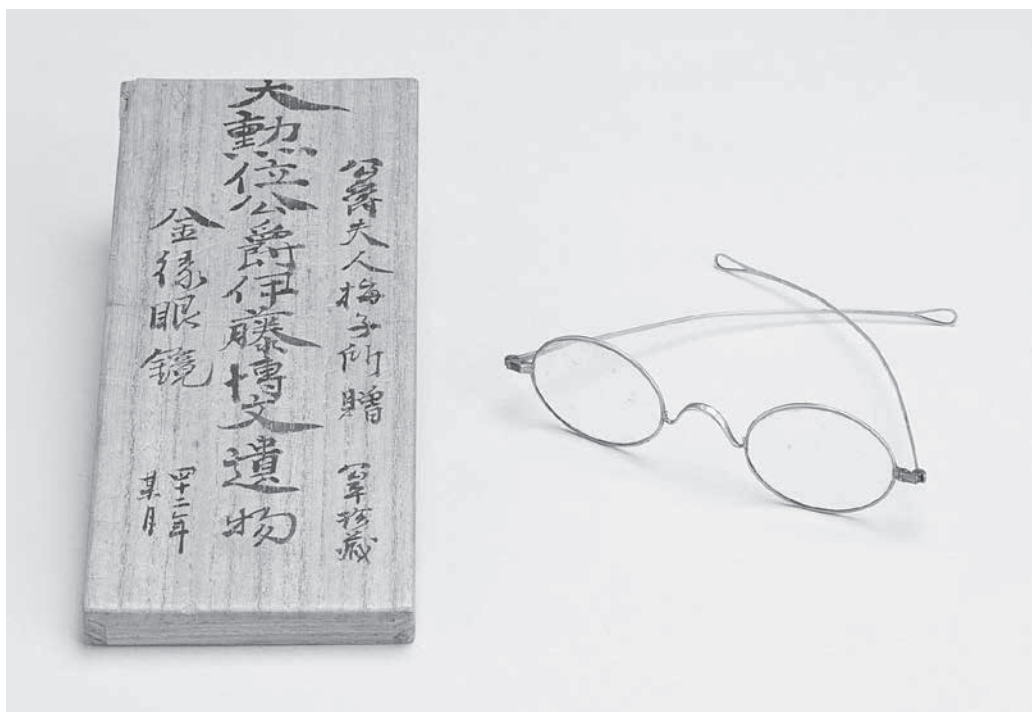 公爵夫人梅子所贈
珍藏
大勲位公爵伊藤博文遺物
金縁眼鏡
四十二年
某月